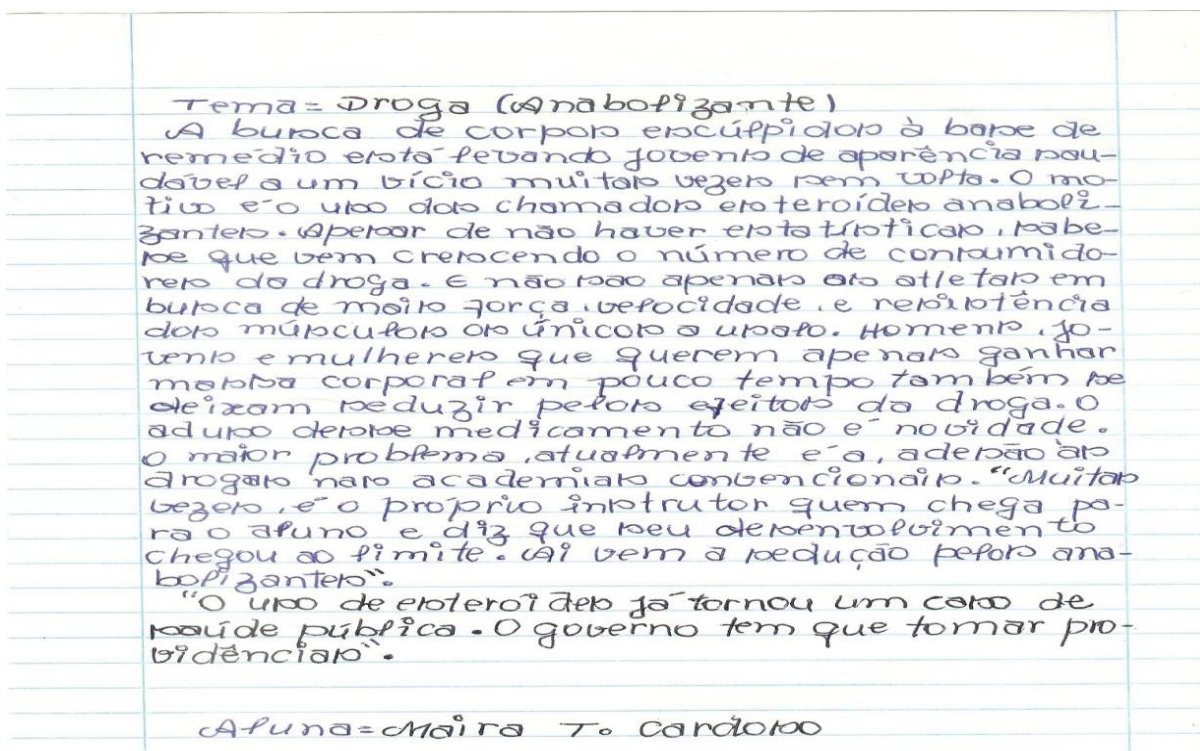 Tema= Droga (Anabolizante)
A busca de corpos escúlpidos à base de
remédio está levando jovens de aparência sau-
dável a um vício muitas vezes sem volta. O mo-
tivo é o uso dos chamados esteroídes anaboli-
zantes. Apesar de não haver estatísticas, sabe-
se que vem crescendo o número de consumido-
res da droga. E não são apenas os atletas em
busca de mais força, velocidade, e resistência
dos músculos os únicos a usalo. Homens, jo-
vens e mulheres que querem apenas ganhar
massa corporal em pouco tempo também se
deixam seduzir pelos efeitos da droga. O
aduso desse medicamento não é novidade.
O maior problema, atualmente é a, adesão às
drogas nas academias convencionais. "Muitas
vezes, é o próprio instrutor quem chega pa-
ra o aluno e diz que seu desenvolvimento
chegou ao limite. Aí vem a sedução pelos ana-
bolizantes".
"O uso de esteroídes já tornou um caso de
saúde pública. O governo tem que tomar pro-
vidências".
Aluna= Maira T. Cardoso